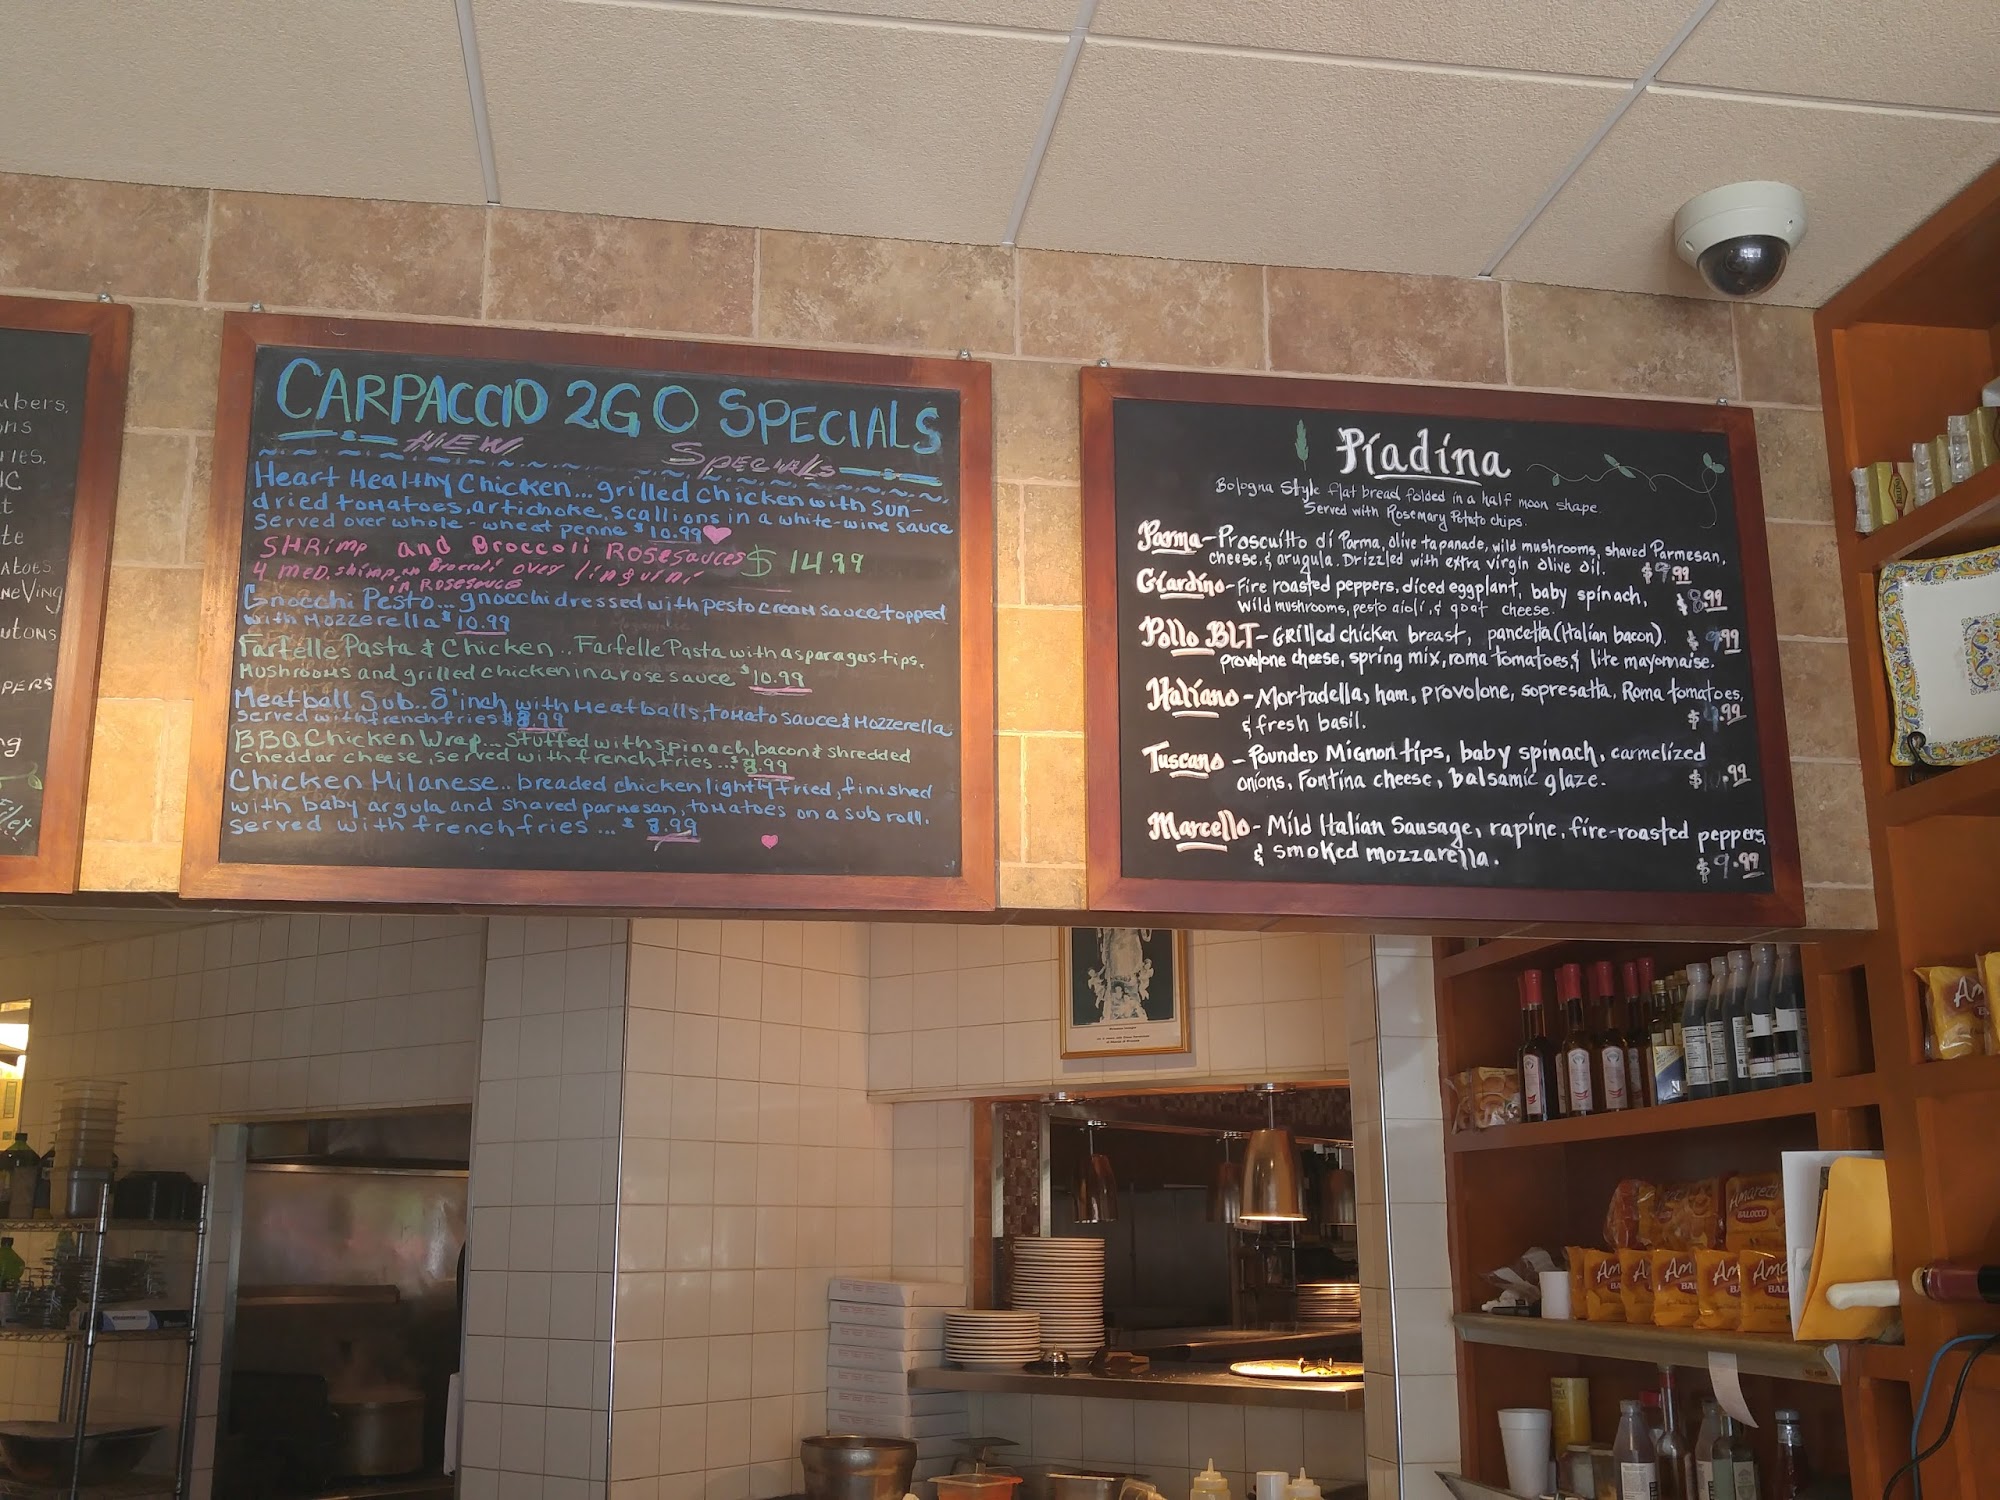 CARPACCIO 2GO SPECIALS
NEW Specials
Heart Healthy Chicken... grilled chicken with sun-
dried tomatoes, artichoke, scallions in a white-wine sauce
served over whole-wheat penne $10.99
SHRimp and Broccoli Rosesauces $14.99
4 med. shimp, Broccoli over linguini
in Rosesauce
Gnocchi Pesto... gnocchi dressed with pesto cream sauce topped
with Mozzerella $10.99
Farfelle Pasta & Chicken.. Farfelle Pasta with asparagas tips,
Mushrooms and grilled chicken in a rose sauce $10.99
Meatball Sub.. 8"inch with Meatballs, tomato sauce & Mozzerella
served with french fries $8.99
BBQ Chicken Wrap... Stuffed with spinach, bacon & shredded
cheddar cheese, served with french fries... $8.99
Chicken Milanese.. breaded chicken lightly fried, finished
with baby argula and shaved parmesan, tomatoes on a sub roll.
served with french fries ... $8.99
Piadina
Bologna Style flat bread folded in a half moon shape.
Served with Rosemary Potato chips.
Parma-Proscuitto di Parma, olive tapanade, wild mushrooms, shaved Parmesan,
cheese, & arugula. Drizzled with extra virgin olive oil. $9.99
Giardino-Fire roasted peppers, diced eggplant, baby spinach,
wild mushrooms, pesto aioli, & goat cheese. $8.99
Pollo BLT-Grilled chicken breast, pancetta (Italian bacon). $9.99
provolone cheese, spring mix, roma tomatoes, & lite mayonnaise.
Italiano-Mortadella, ham, provolone, sopresatta, Roma tomatoes,
& fresh basil. $9.99
Tuscano-Pounded Mignon tips, baby spinach, carmelized
onions, Fontina cheese, balsamic glaze. $10.99
Marcello-Mild Italian Sausage, rapine, fire-roasted peppers
& smoked mozzarella. $9.99
ubers,
ons
ries.
atoes,
ne Ving
utons
PPERS
Amaretti
BALOCCO